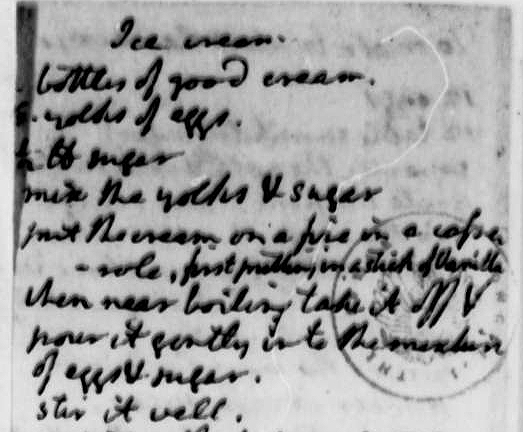 Ice cream.
bottles of good cream.
6. yolks of eggs.
½ lb sugar
mix the yolks & sugar
put the cream on a fire in a casse
- role, first putting in a stick of Vanilla
when near boiling take it off &
pour it gently into the mixture
of eggs & sugar.
stir it well.